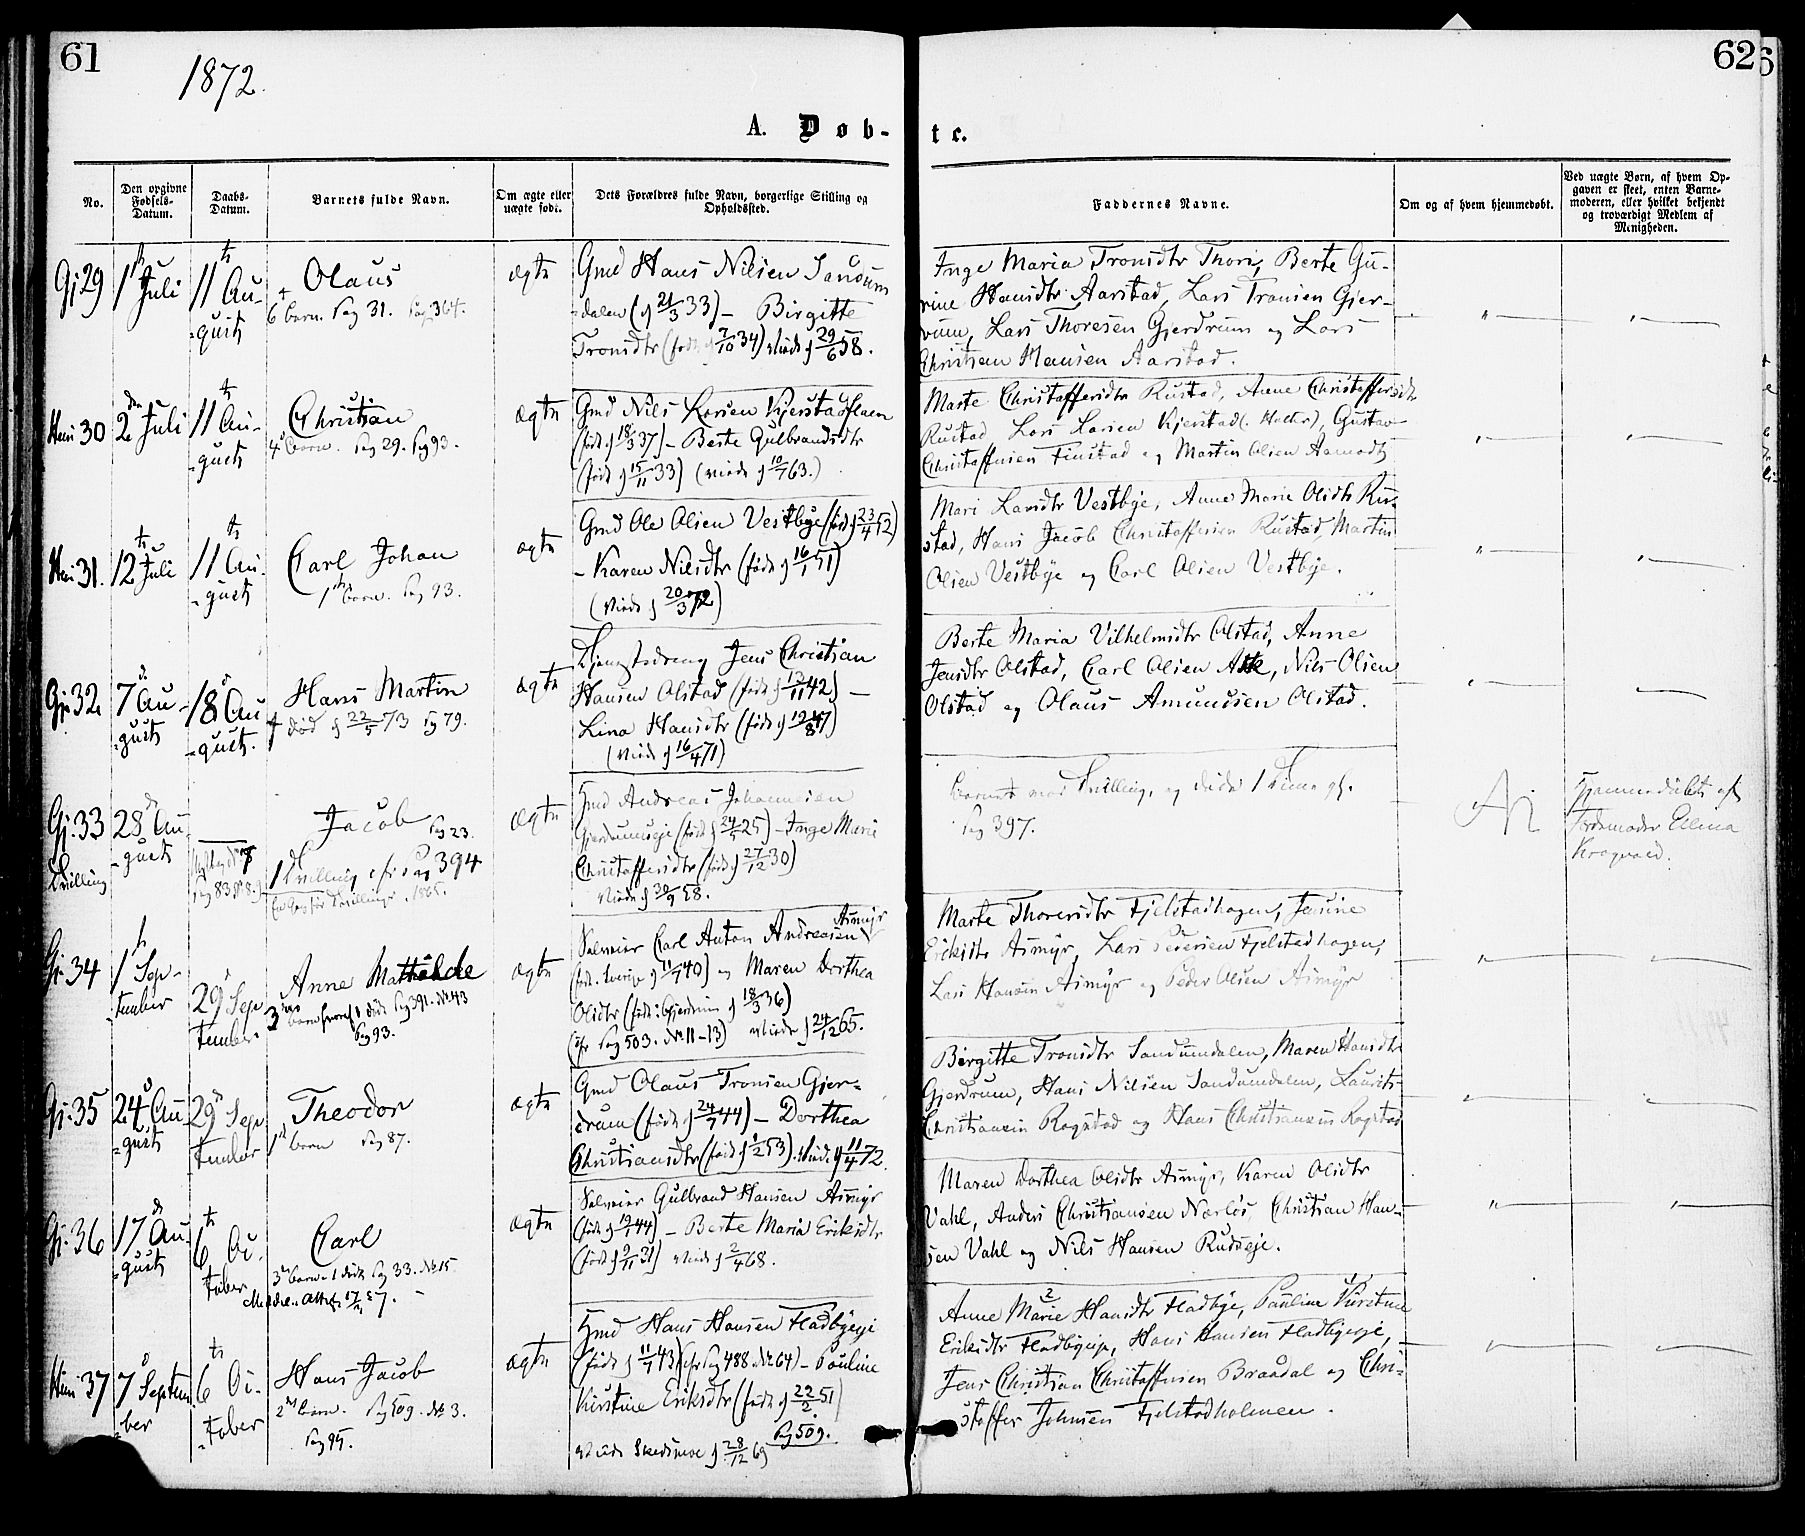 61
62
1872.
A. Døb-
te.
No.
Den opgivne Fødsels-Datum.
Daabs-Datum.
Barnets fulde Navn.
Om ægte eller uægte født.
Dets Forældres fulde Navn, borgerlige Stilling og Opholdssted.
Faddernes Navne.
Om og af hvem hjemmedøbt.
Ved uægte Børn, af hvem Opgaven er skeet, enten Barnemoderen, eller hvilket bekjendt og troværdigt Medlem af Menigheden.
Gj 29
1 Juli
11 Au-
-gust
Olaus
6 barn. Pag 31. Pag 364.
ægte
Gmd Hans Nilsen Sandum
-dalen (f 21/3 33) – Birgitte
Tronsdtr (født f 7/10 34) viede f 29/6 58.
Inge Maria Tronsdtr Thori, Berte Gu-
rine Hansdtr Aarstad, Lars Tronsen Gjer-
drum, Lars Thoresen Gjerdrum og Lars
Christian Hansen Aarstad.
30
2den Juli
11 Au-
-gust
Christian
4 barn. Pag 29. Pag 93.
ægte
Gmd Nils Larsen Kjerstad
(født f 18/5 37) – Berte Gulbrandsdtr
(født f 15/11 33) (viede f 10/7 63.)
Marte Christoffersdtr Rustad, Anne Christoffersdtr
Rustad, Lars Larsen Kjerstad, Gustav
Christoffersen Finstad og Martin Olsen Aamodt
31.
12 Juli
11 Au-
-gust
Carl Johan
1ste barn. Pag 93.
ægte
Gmd Ole Olsen Vestbye (født f 23/4 52)
– Karen Nilsdtr (født f 16/1 51)
(viede f 20/3 72)
Mari Larsdtr Vestbye, Anne Marie Olsdtr Ru-
stad, Hans Jacob Christoffersen Rustad, Martin
Olsen Vestbye og Carl Olsen Vestbye.
Gj. 32
7 Au-
-gust
18 Au
-gust.
Hans Martin
† død f 22/5 73 Pag 79.
ægte
Tjenestedreng Jens Christian
Hansen Olstad (født f 12/11 42) –
Lina Hansdtr (født f 19/8 47)
(viede f 16/4 71)
Berte Maria Vilhelmsdtr Olstad, Anne
Jensdtr Olstad, Carl Olsen Ask, Nils Olsen
Olstad og Olaus Amundsen Olstad.
Gj. 33
Tvilling
28 Au-
-gust
Jacob Pag 23.
1 Tvilling cfr Pag 394
1865.
ægte
Hmd Andreas Johannesen
Gjerdrumseje (født f 24/5 25) – Inge Marie
Christoffersdtr (født f 27/12 30)
viede f 30/9 58.
Barnet var Tvilling, og døde 1 Time gl.
Pag 397.
Hjemmedøbt af
Jordemoder Elena
Kragvold.
Gj. 34
1 Sep-
-tember
29 Sep
tember
Anne Mathilde
3die barn hvoraf 1 død Pag 391. No 43
Pag 93.
ægte
Selveier Carl Anton Andreasen Asmyr
(født i Sverige f 11/7 40) og Maren Dorthea
Olsdtr (født i Gjerdrum f 18/3 36)
(cfr Pag 503. No 11–13) viede f 24/12 65.
Marte Thoresdtr Fjelstadhagen, Jensine
Eriksdtr Asmyr, Lars Pedersen Fjelstadhagen,
Lars Hansen Asmyr og Peder Olsen Asmyr
Gj. 35
24 Au-
-gust
29 Sep
tember
Theodor
1ste barn Pag 87.
ægte
Gmd Olaus Tronsen Gjer-
drum (født f 24/7 44) – Dorthea
Christiansdtr (født f 1/2 53). viede f 11/4 72.
Birgitte Tronsdtr Sandumdalen, Maren Hansdtr
Gjerdrum, Hans Nilsen Sandumdalen, Laurits
Christiansen Rogstad og Hans Christiansen Rogstad
Gj. 36
17 Au-
-gust
6 Oc-
tober
Carl
3die barn 1 død Pag 33. No 15.
ægte
Selveier Gulbrand Hansen Asmyr
(født f 19/1 44) – Berte Maria Eriksdtr
(født f 9/11 31) viede f 2/4 68.
Maren Dorthea Olsdtr Asmyr, Karen Olsdtr
Vahl, Anders Christiansen Nærlos, Christian Han-
sen Vahl og Nils Hansen Rudseje.
37
7 Septem
-ber
6 Oc-
-tober
Hans Jacob
2det barn. Pag 509. No 3.
Pag 95.
ægte
Hmd Hans Hansen Fladbyeje
(født f 11/7 43) (cfr Pag 488 No 64) – Pauline
Kirstine Eriksdtr (født f 22/2 51)
Pag 509.
viede Skedsmoe f 28/12 69
Anne Marie Hansdtr Fladbye, Pauline Kirstine
Eriksdtr Fladbyeje, Hans Hansen Fladbyeje,
Jens Christian Christoffersen Braadal og Chri-
stoffer Johnsen Fjelstadholmen.